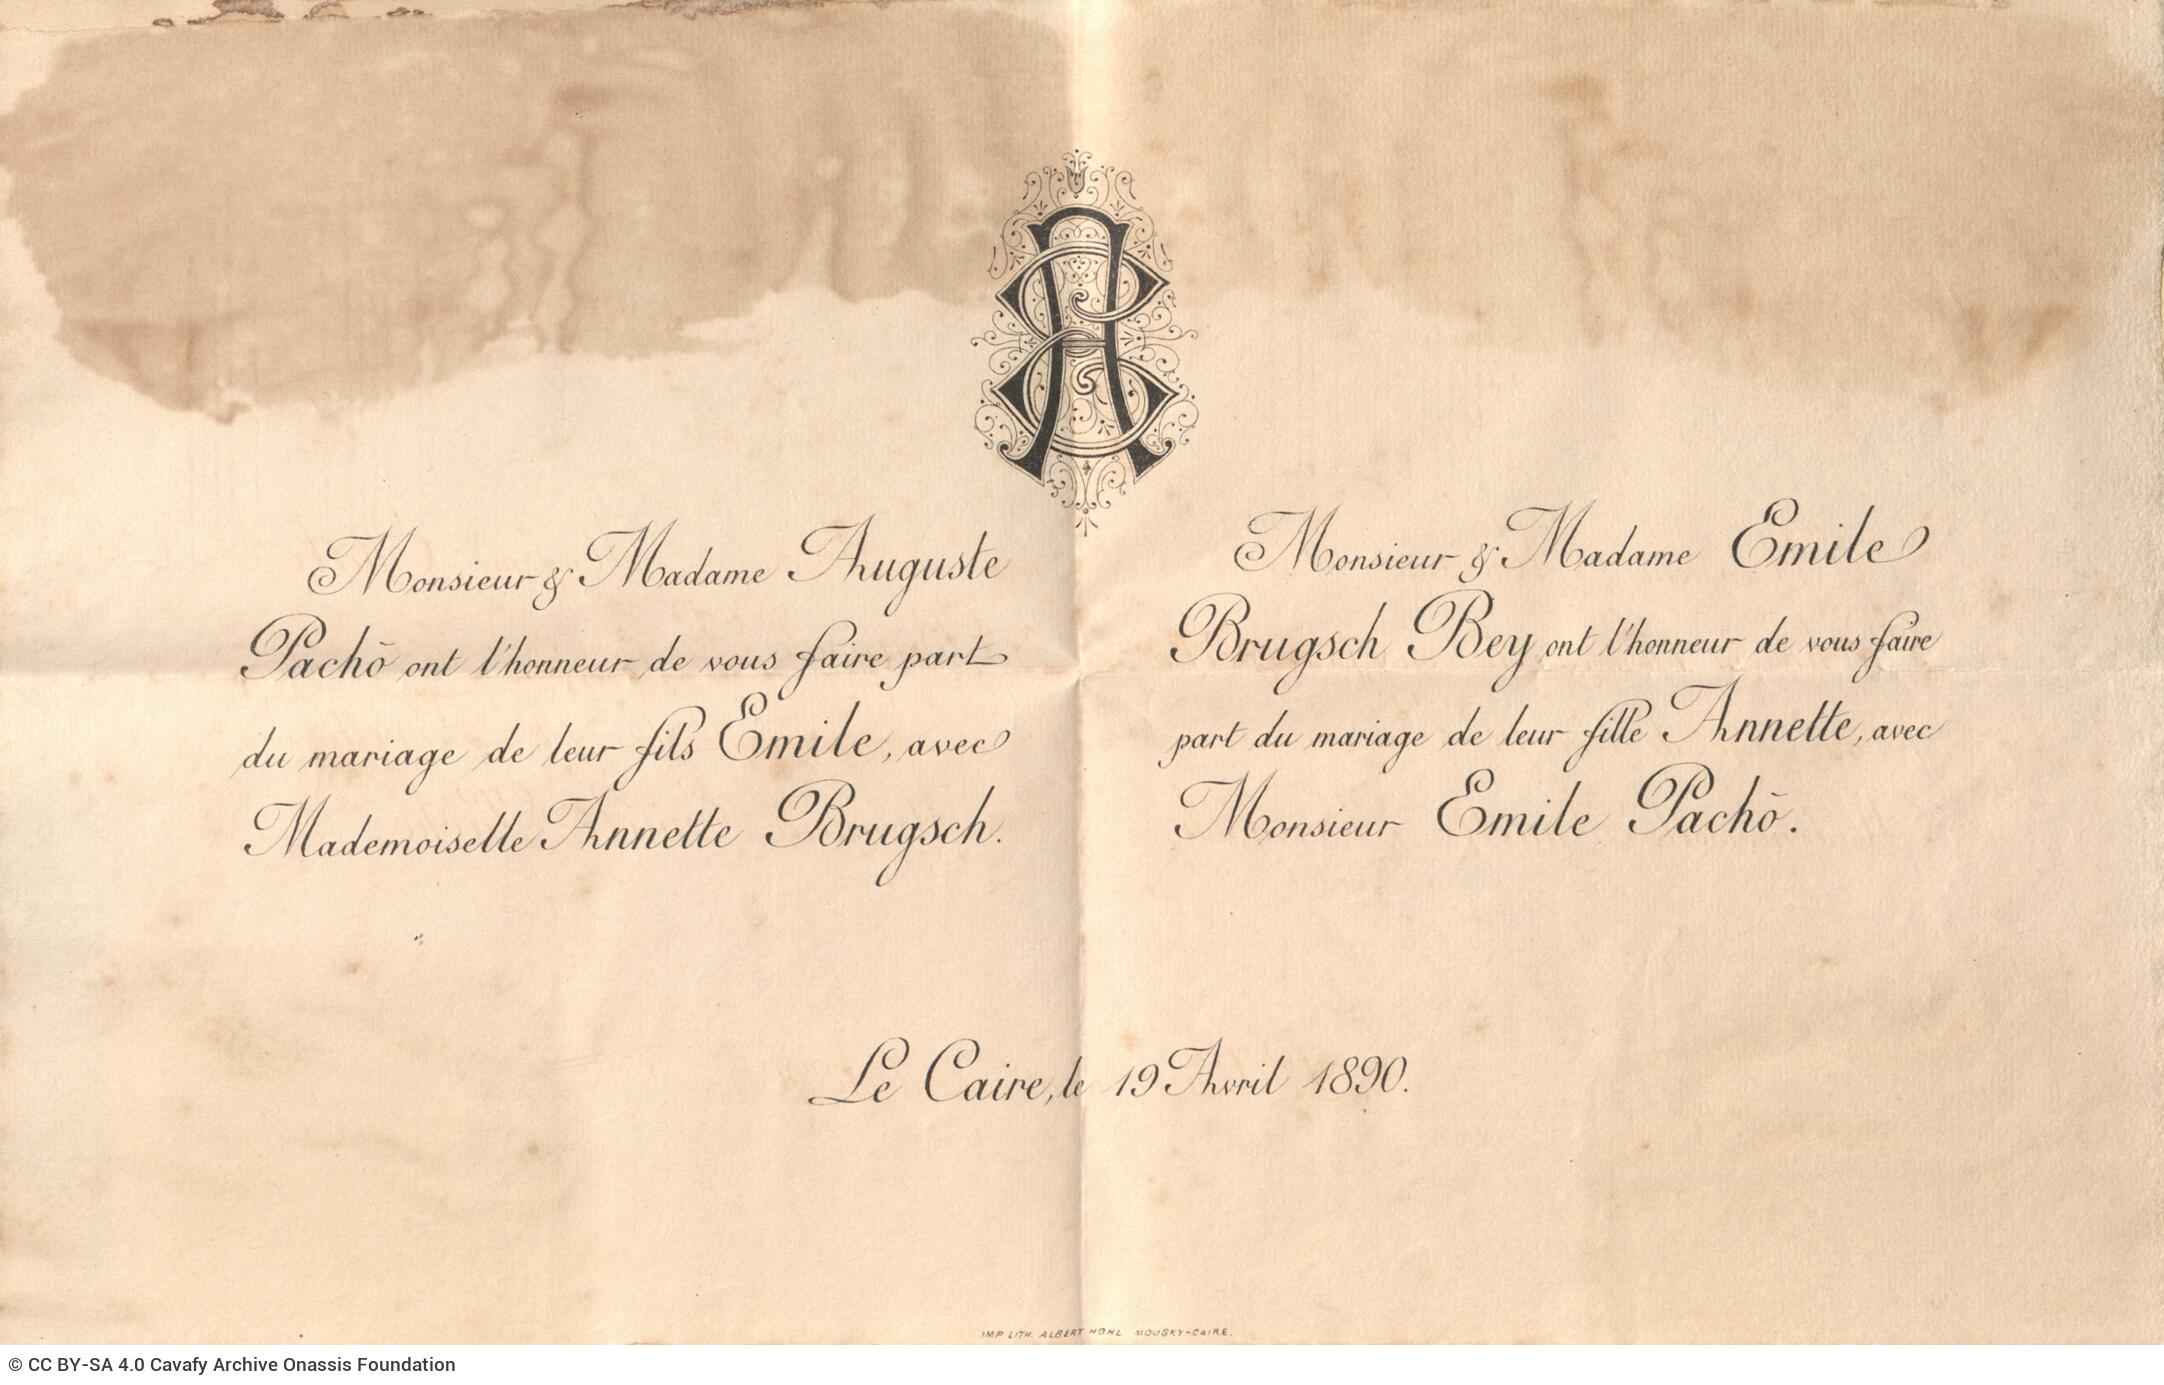 Monsieur & Madame Auguste
Pachō ont l'honneur de vous faire part
du mariage de leur fils Emile, avec
Mademoiselle Annette Brugsch.
Monsieur & Madame Emile
Brugsch Bey ont l'honneur de vous faire
part du mariage de leur fille Annette, avec
Monsieur Emile Pachō.
Le Caire, le 19 Avril 1890.
IMP. LITH. ALBERT HOHL MOUSKY-CAIRE.
© CC BY-SA 4.0 Cavafy Archive Onassis Foundation